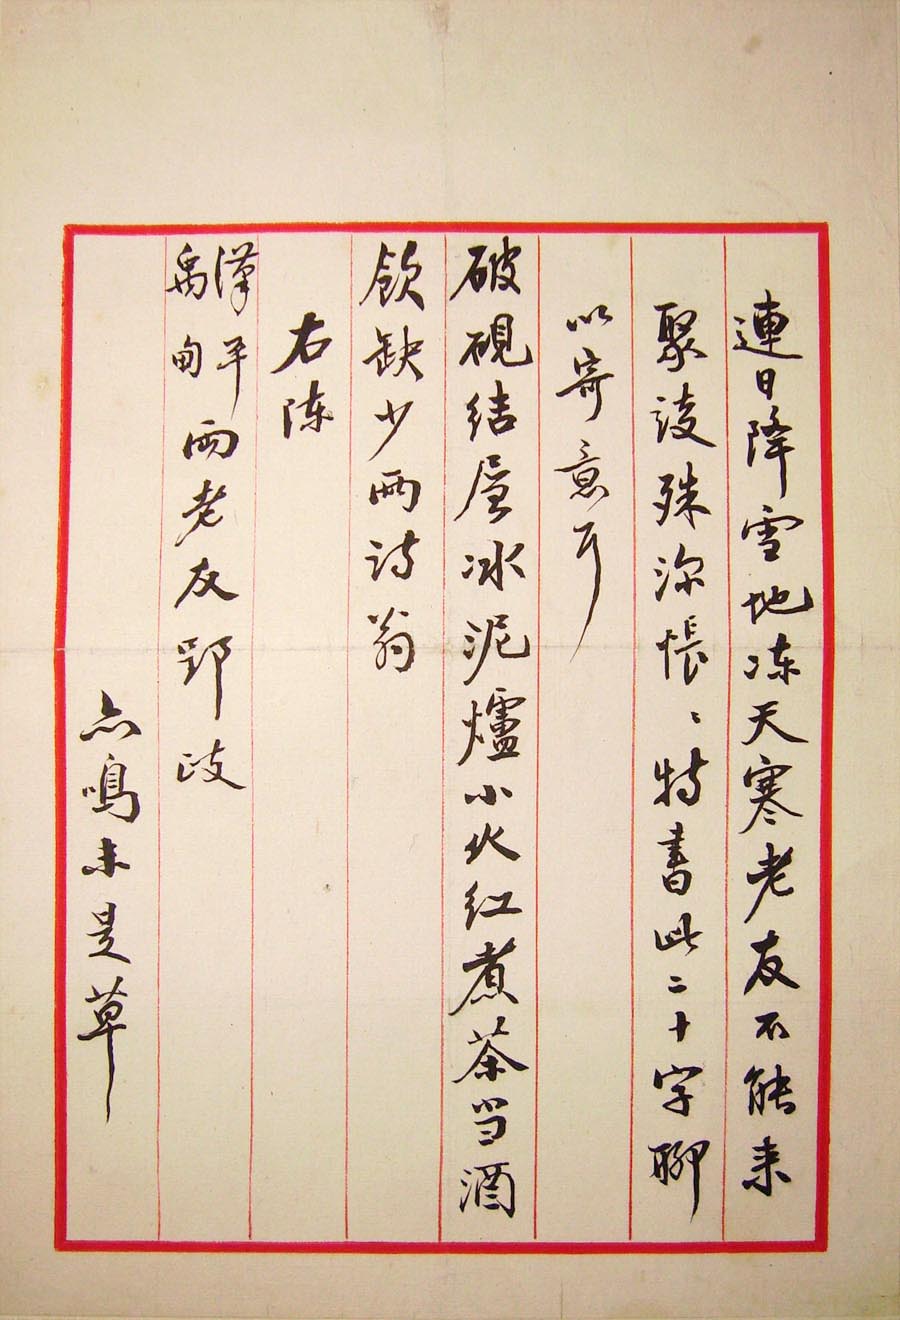 連日降雪地冻天寒老友不能来
聚谈殊深悵〻特書此二十字聊
以寄意耳
破硯结层冰泥爐小火红煮茶当酒
飲缺少两诗翁
右陈
漢平
禹甸
两老友郢政
亦鳴未是草